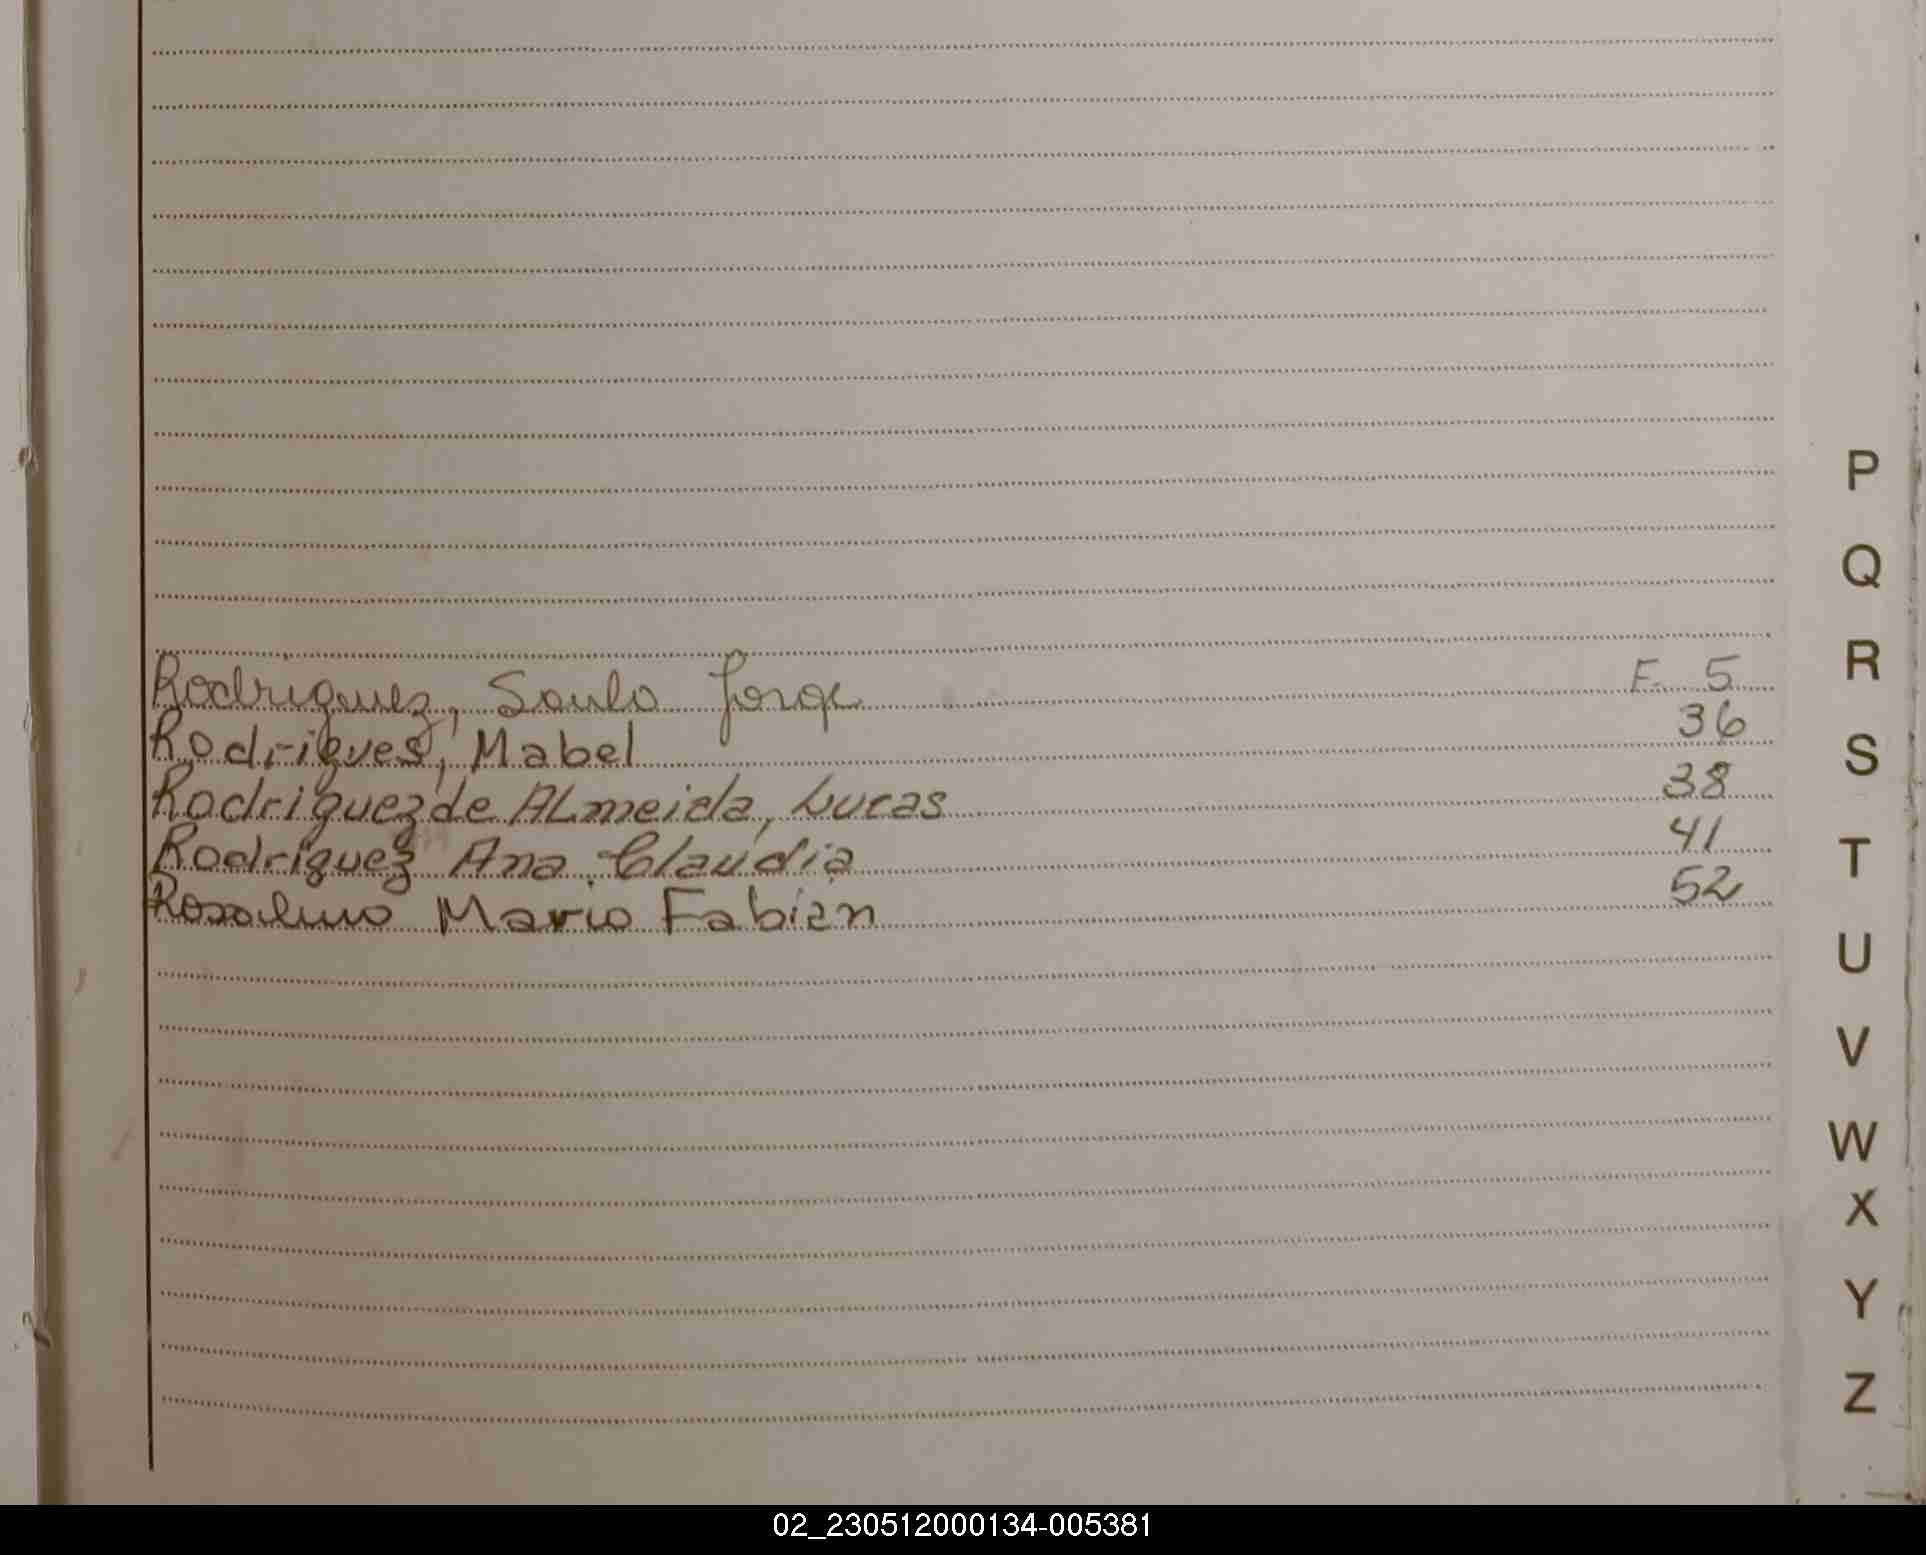 Rodriguez, Saulo Jorge F. 5
Rodrigues, Mabel 36
Rodriguez de ALmeida, Lucas 38
Rodriguez Ana Claudia 41
Mario Fabian 52
P
Q
R
S
T
U
V
W
X
Y
Z
02_230512000134-005381